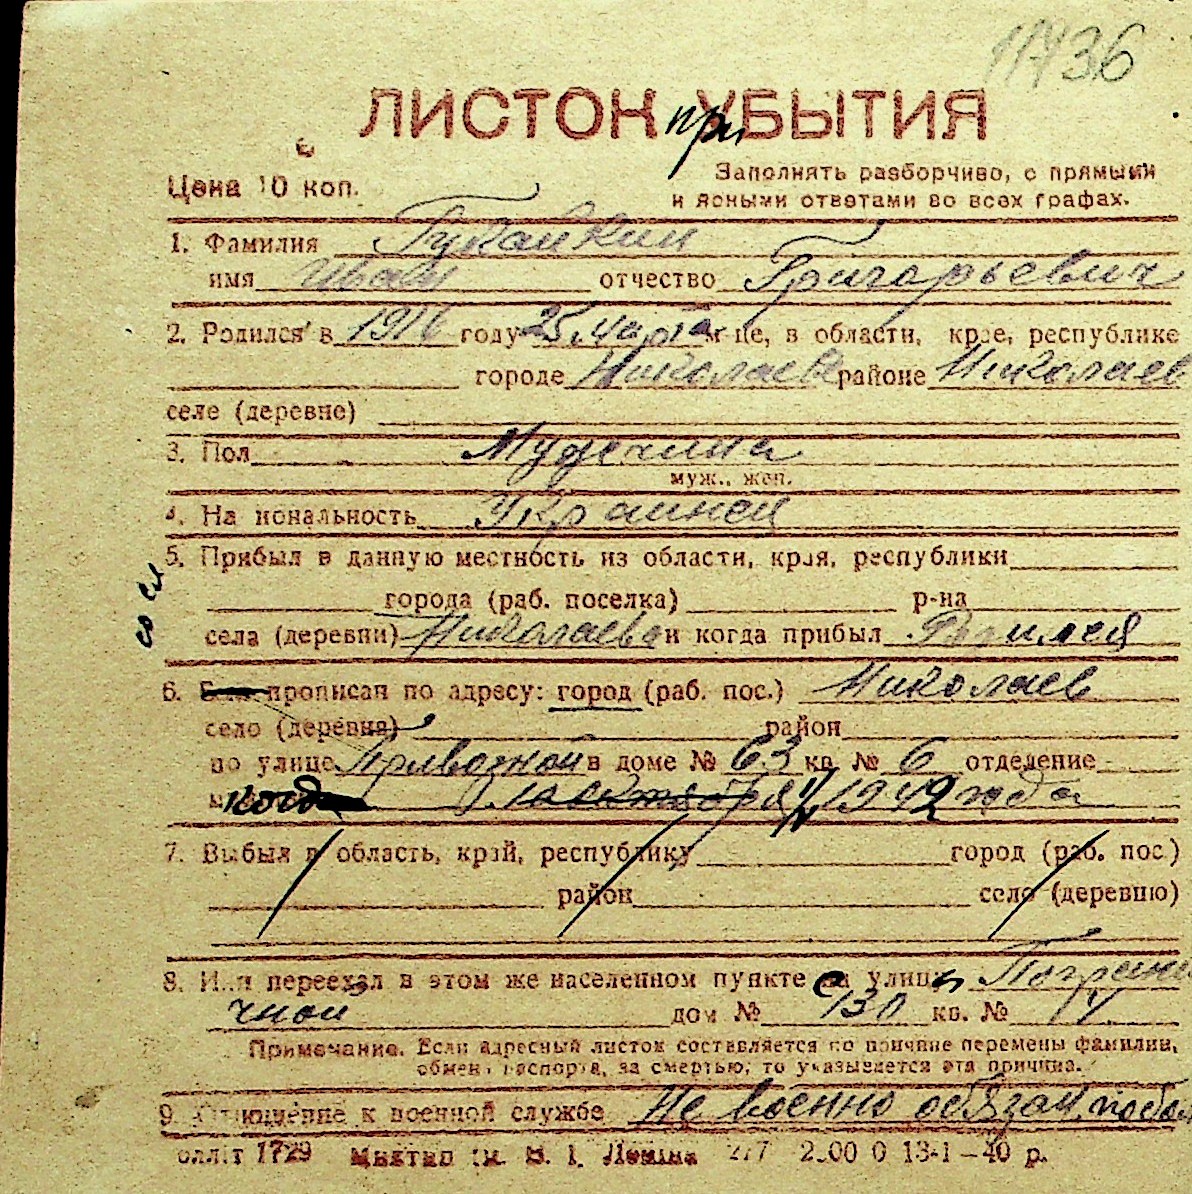 11736
ЛИСТОК при УБЫТИЯ
Цена 10 коп.
Заполнять разборчиво, с прямыми
и ясными ответами во всех графах.
1. Фамилия
имя Иван отчество Григорьевич
2. Родился в 1916 году 25 марта м-це, в области, крае, республике
городе Николаев районе Николаев
селе (деревне)
3. Пол Мужчина
муж., жен.
4. Национальность Украинец
5. Прибыл в данную местность из области, края, республики
города (раб. поселка) р-на
села (деревни) Николаево и когда прибыл Родился
6. прописан по адресу: город (раб. пос.) Николаев
село (деревня) район
по улице Привозной в доме № 63 кв. № 6 отделение
когда 10 октября 1942 года
7. Выбыл в область, край, республику город (раб. пос.)
район село (деревню)
8. Или переехал в этом же населенном пункте с улицы Пограни
чной дом № 130 кв. № 14
Примечание. Если адресный листок составляется по причине перемены фамилии,
обмена паспорта, за смертью, то указывается эта причина.
9. Отношение к военной службе Не военно обязан,
1729 им. В. І. Леніна 277 2.00 0 13-1—40 р.